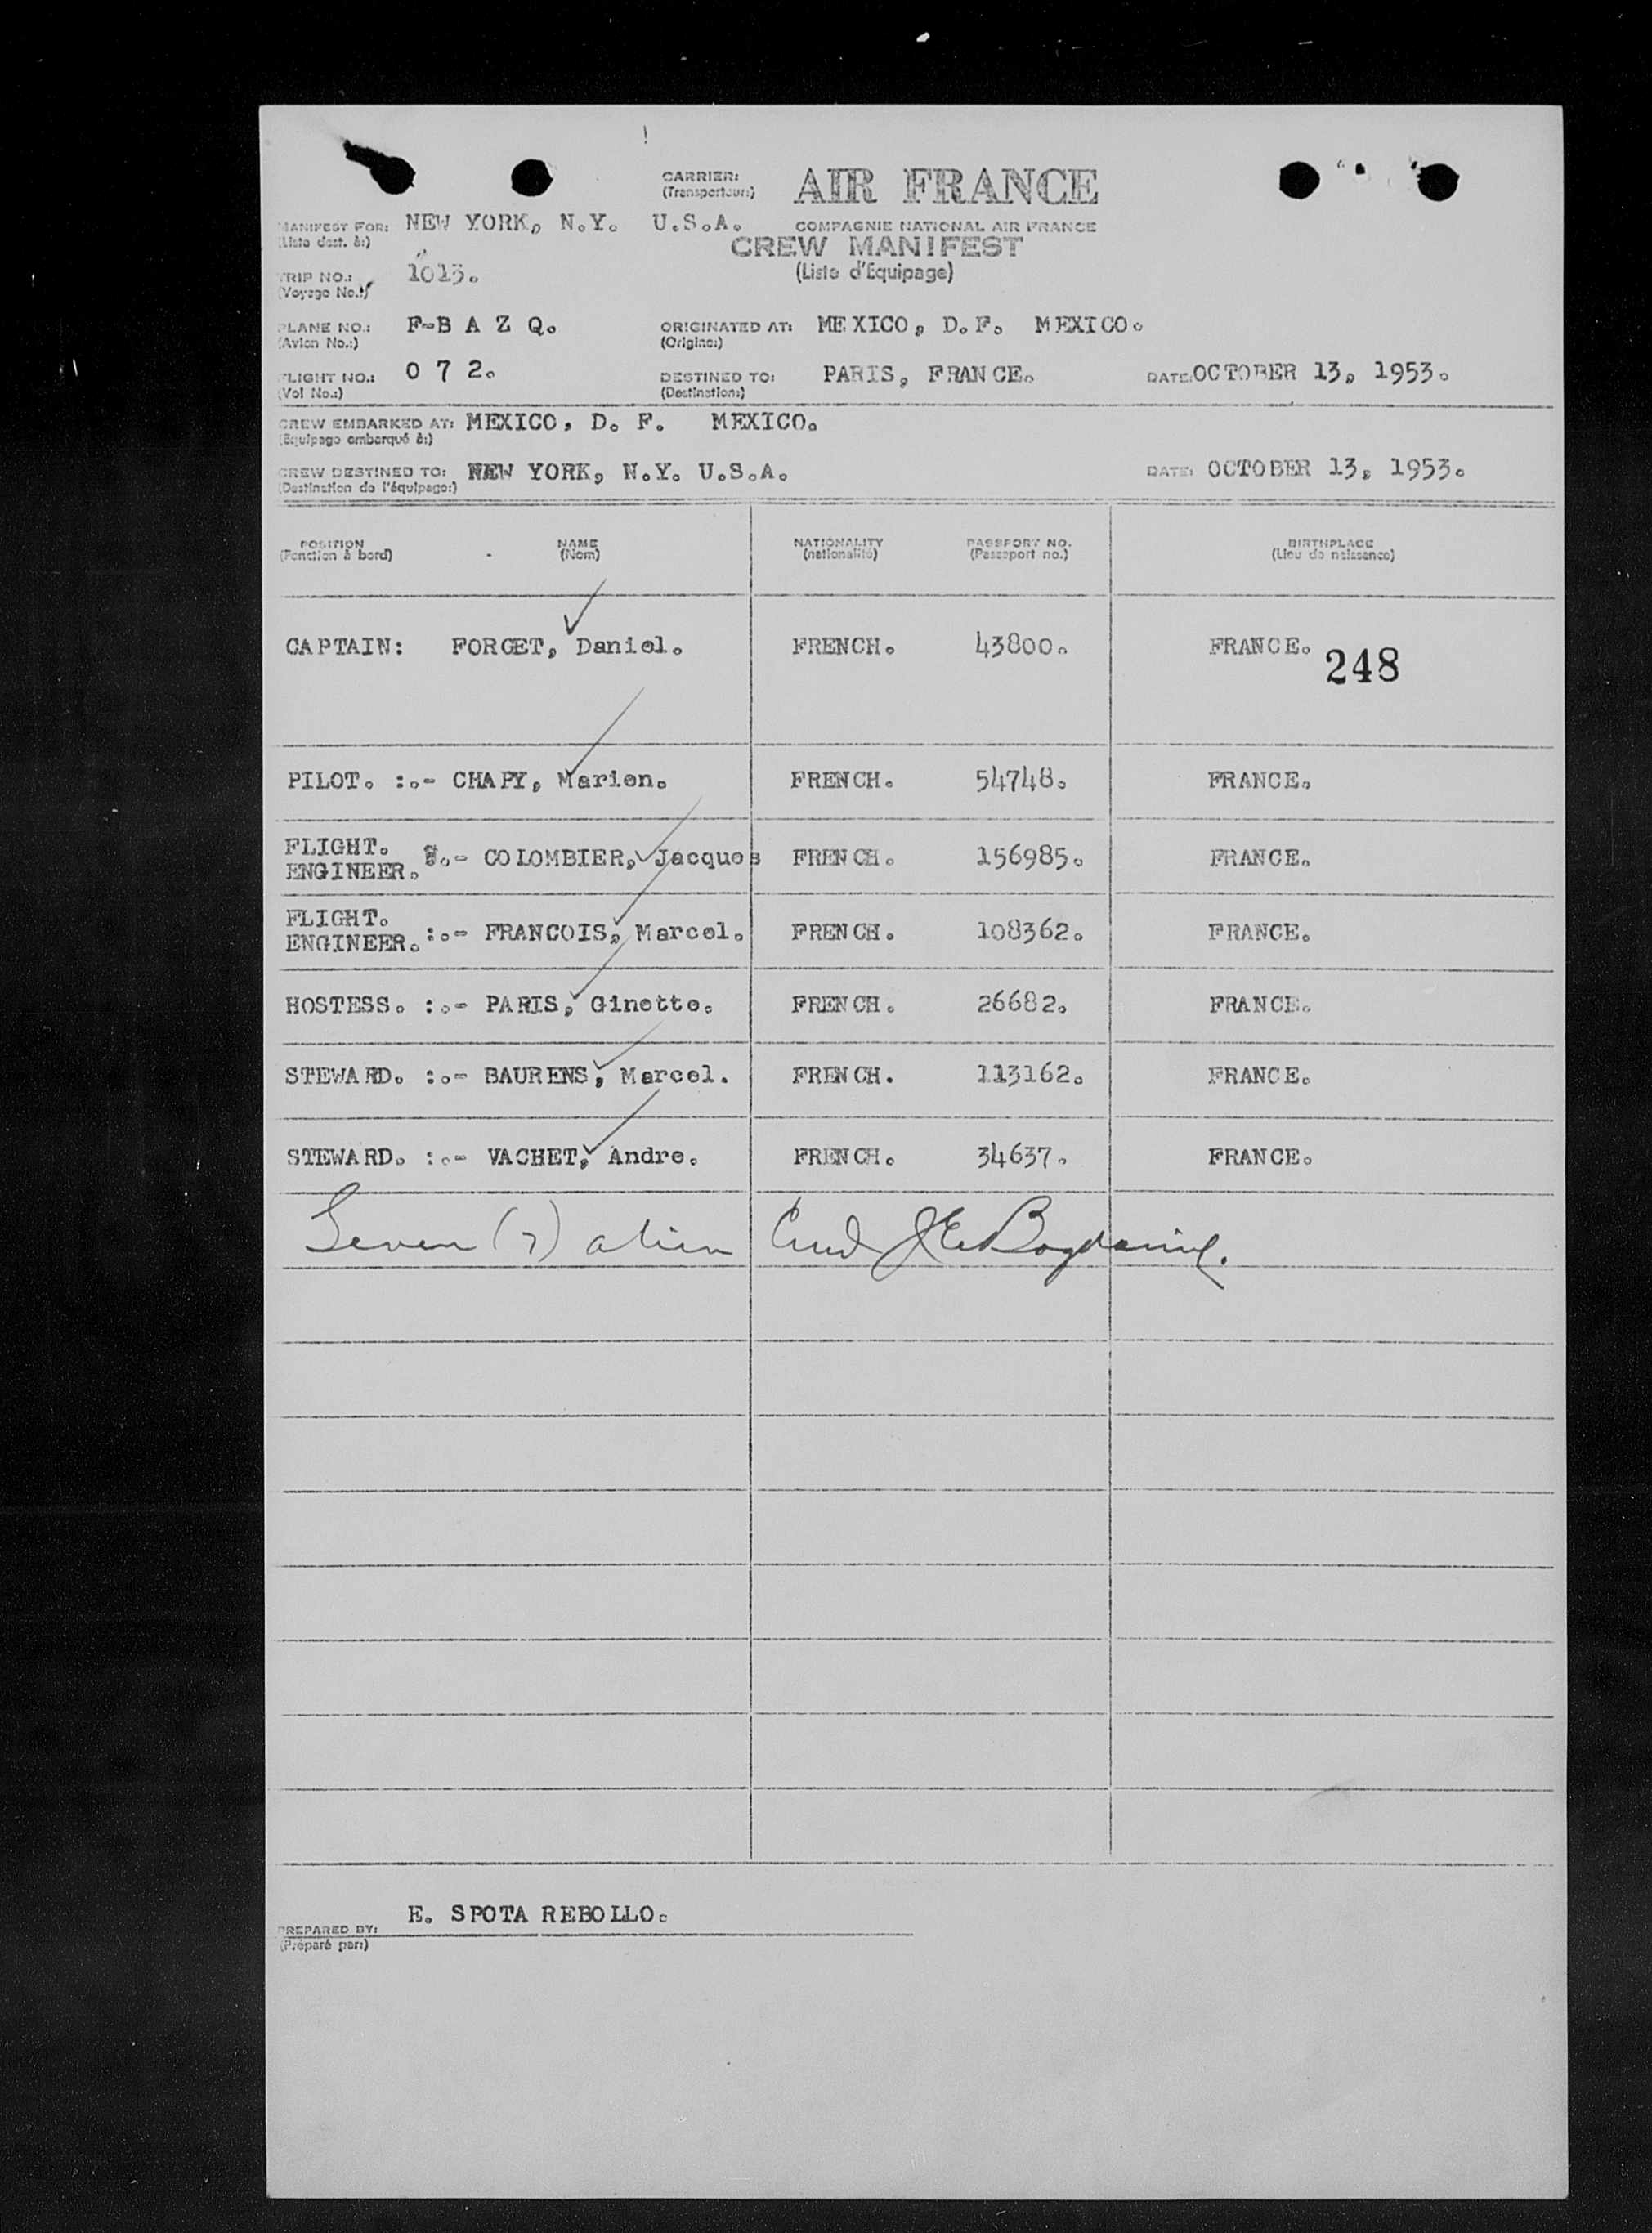 CARRIER: AIR FRANCE
(Transporteur:)
MANIFEST FOR: NEW YORK, N.Y. U.S.A. COMPAGNIE NATIONAL AIR FRANCE
(Liste dest. à:)
CREW MANIFEST
TRIP NO.: 1013. (Liste d'Equipage)
(Voyage No.:)
PLANE NO.: F-B A Z Q. ORIGINATED AT: MEXICO, D.F. MEXICO.
(Avion No.:) (Origine:)
FLIGHT NO.: 0 7 2. DESTINED TO: PARIS, FRANCE. DATE: OCTOBER 13, 1953.
(Vol No.:) (Destination:)
CREW EMBARKED AT: MEXICO, D. F. MEXICO.
(Equipage embarqué à:)
CREW DESTINED TO: NEW YORK, N.Y. U.S.A. DATE: OCTOBER 13, 1953.
(Destination de l'équipage:)
POSITION NAME NATIONALITY PASSPORT NO. BIRTHPLACE
(Fonction à bord) (Nom) (nationalité) (Passeport no.) (Lieu de naissance)
CAPTAIN: FORGET, Daniel. FRENCH. 43800. FRANCE. 248
PILOT. :.- CHAPY, Marien. FRENCH. 54748. FRANCE.
FLIGHT.
ENGINEER. :.- COLOMBIER, Jacques FRENCH. 156985. FRANCE.
FLIGHT.
ENGINEER. :.- FRANCOIS, Marcel. FRENCH. 108362. FRANCE.
HOSTESS. :.- PARIS, Ginette. FRENCH. 26682. FRANCE.
STEWARD. :.- BAURENS, Marcel. FRENCH. 113162. FRANCE.
STEWARD. :.- VACHET, Andre. FRENCH. 34637. FRANCE.
Seven (7) alien
E. SPOTA REBOLLO.
PREPARED BY:
(Préparé par:)